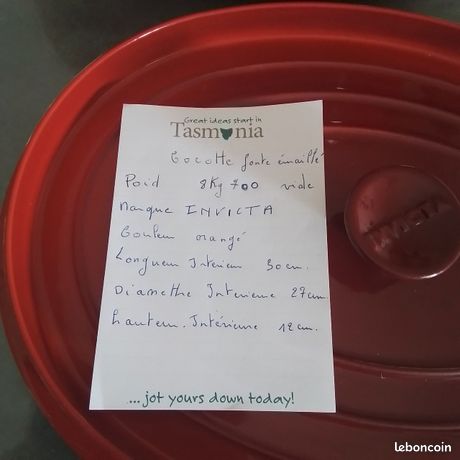 Great ideas start in
Tasmania
Cocotte fonte émaillé
Poid 8Kg 700 vide
Marque INVICTA
Couleur orangé
Longueur Interieur 30 cm.
Diametthe Interieure 27 cm
hauteur. Intérieure 12 cm.
... jot yours down today!
INVICTA
leboncoin